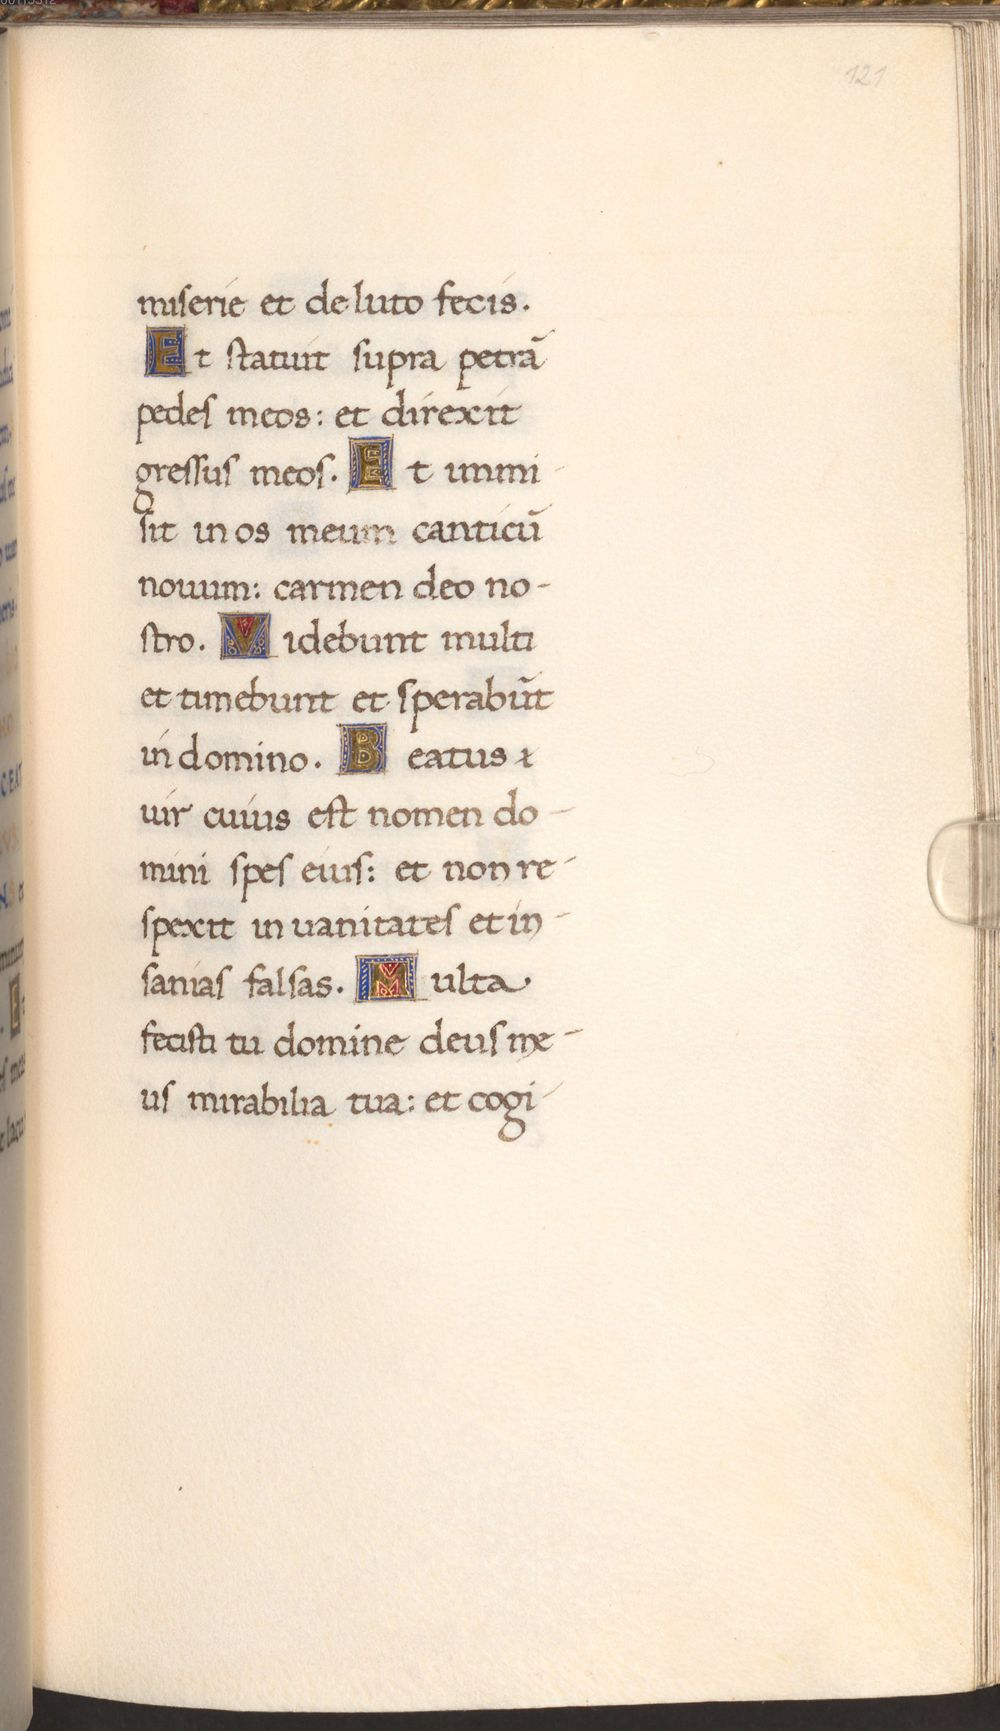 121
miserie et de luto fecis.
Et statuit supra petrā
pedes meos: et direxit
gressus meos. Et immi-
sit in os meum canticū
nouum: carmen deo no-
stro. Videbunt multi
et timebunt et sperabūt
in domino. Beatus
uir cuius est nomen do-
mini spes eius: et non re-
spexit in uanitates et in-
sanias falsas. Multa
fecisti tu domine deus me-
us mirabilia tua: et cogi-